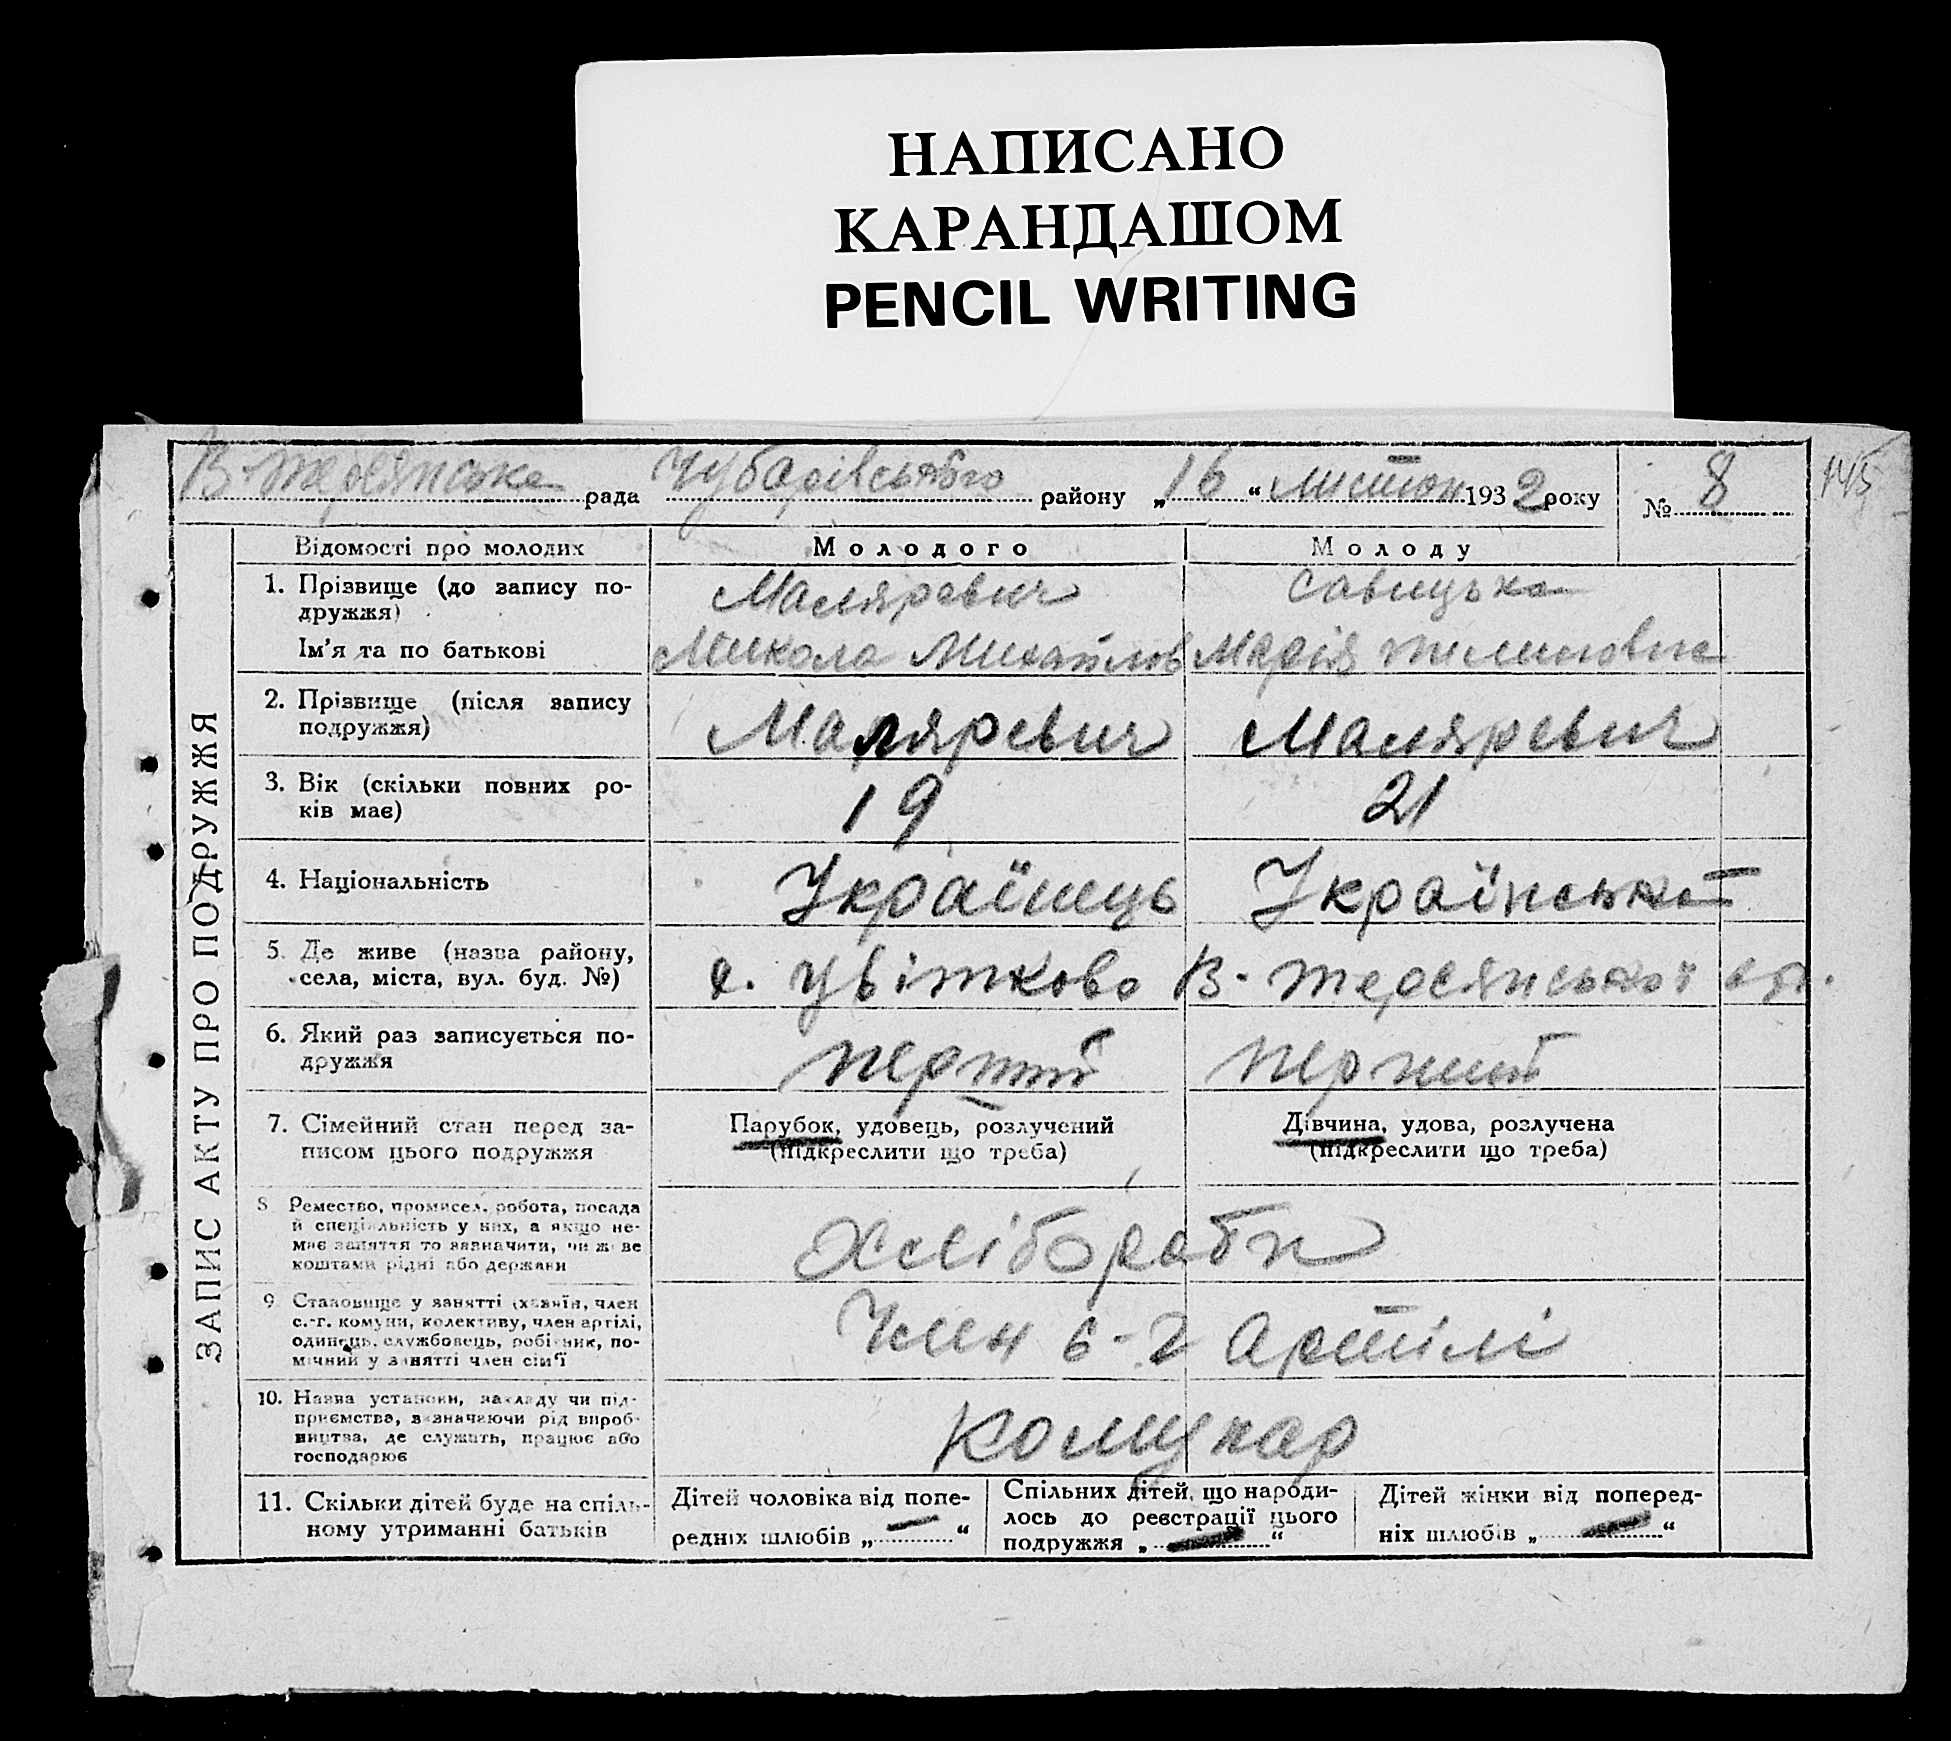 НАПИСАНО
КАРАНДАШОМ
PENCIL WRITING
В-Терсянська рада Чубарівського району „16“ Листоп 1932 року № 8
145
ЗАПИС АКТУ ПРО ПОДРУЖЖЯ
Відомості про молодих Молодого Молоду
1. Прізвище (до запису по-
дружжя) Маляревич Савицька
Ім'я та по батькові Микола Михайлов Марія
2. Прізвище (після запису
подружжя) Маляревич Маляревич
3. Вік (скільки повних ро-
ків має) 19 21
4. Національність Українець Українська
5. Де живе (назва району,
села, міста, вул. буд. №) х. Цвіткова В-Терсянської с/р.
6. Який раз записується по-
дружжя перший перший
7. Сімейний стан перед за-
писом цього подружжя
Парубок, удовець, розлучений
(підкреслити що треба)
Дівчина, удова, розлучена
(підкреслити що треба)
8 Ремество, промисел, робота, посада
й спеціяльність у них, а якщо не-
має заняття то зазначити, чи живе
коштами рідні або держави
Хлібороби
9 Становище у занятті (хазяїн, член
с.-г. комуни, колективу, член артілі,
одинець, службовець, робітник, по-
мічний у занятті член сім'ї
Член с-г Артілі
10. Назва установи, закладу чи під-
приємства, зазначаючи рід вироб-
ництва, де служить, працює або
господарює
Комунар
11. Скільки дітей буде на спіль-
ному утриманні батьків
Дітей чоловіка від попе-
редніх шлюбів „—“
Спільних дітей, що народи-
лось до реєстрації цього
подружжя „—“
Дітей жінки від поперед-
ніх шлюбів „—“